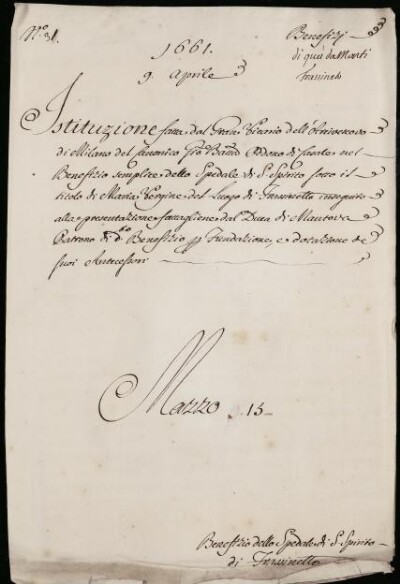 N.º 31.
Benefizj
di quà da Monti
Frassineto
1661.
9. Aprile
Istituzione fatta dal Gran Vicario dell'Arcivescovo
di Milano del Canonico Gio Batta Ordono di Casate nel
Benefizio semplice dello Spedale di S. Spirito sotto il
titolo di Maria Vergine del Luogo di Frassinetto in seguito
alla presentazione fattagliene dal Duca di Mantova
Patrono di d.º Benefizio p Fundazione, e dotazione de
suoi Antecessori
Marzo 15
Benefizio dello Spedale di S. Spirito
di Frassinetto